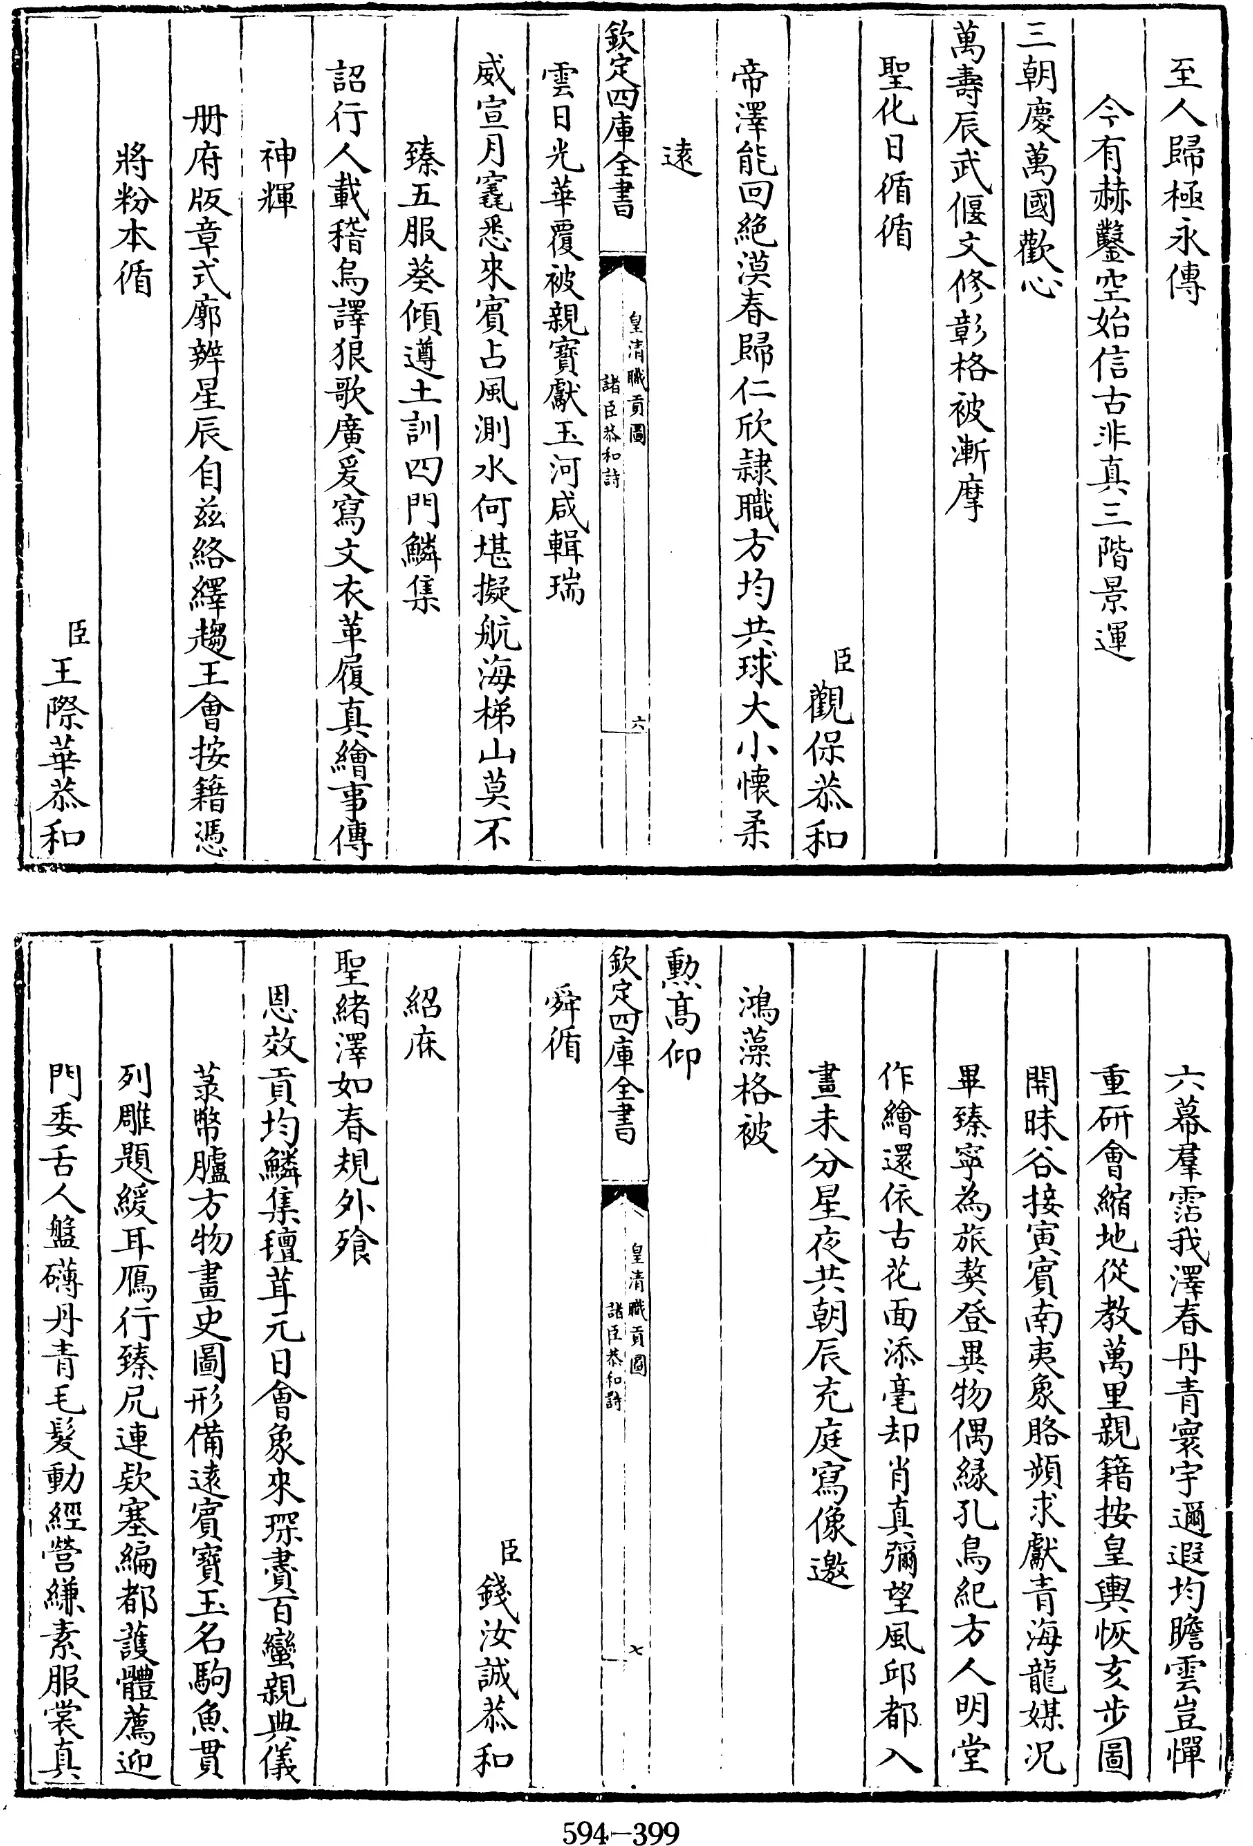 至人歸極永傳
今有赫鑿空始信古非真三階景運
三朝慶萬國歡心
萬壽辰武偃文修彰格被漸摩
聖化日循循
臣觀保恭和
帝澤能回絶漠春歸仁欣隷職方均共球大小懷柔
遠
欽定四庫全書
皇清職貢圖
諸臣恭和詩
六
雲日光華覆被親寶獻玉河咸輯瑞
威宣月窟悉來賓占風測水何堪擬航海梯山莫不
臻五服葵傾遵土訓四門鱗集
詔行人載稽鳥譯狼歌廣爰寫文衣革履真繪事傳
神輝
册府版章式廓辨星辰自兹絡繹趨王會按籍憑
將粉本循
臣王際華恭和
六幕羣霑我澤春丹青寰宇邇遐均瞻雲豈憚
重研會縮地從教萬里親籍按皇輿恢亥步圖
開昧谷接寅賓南夷象胳頻求獻青海龍媒况
畢臻寧為旅獒登異物偶緣孔鳥紀方人明堂
作繪還依古花面添毫却肖真彌望風邱都入
畫未分星夜共朝辰充庭寫像邀
鴻藻格被
勲高仰
欽定四庫全書
皇清職貢圖
諸臣恭和詩
七
舜循
臣錢汝誠恭和
紹庥
聖緒澤如春規外飱
恩效貢均鱗集氊茸元日會象來琛賮百蠻親典儀
菉幣臚方物畫史圖形備遠賓寶玉名駒魚貫
列雕題緩耳鴈行臻尻連欵塞編都護體薦迎
門委舌人盤礴丹青毛髪動經營縑素服裳真
594-399